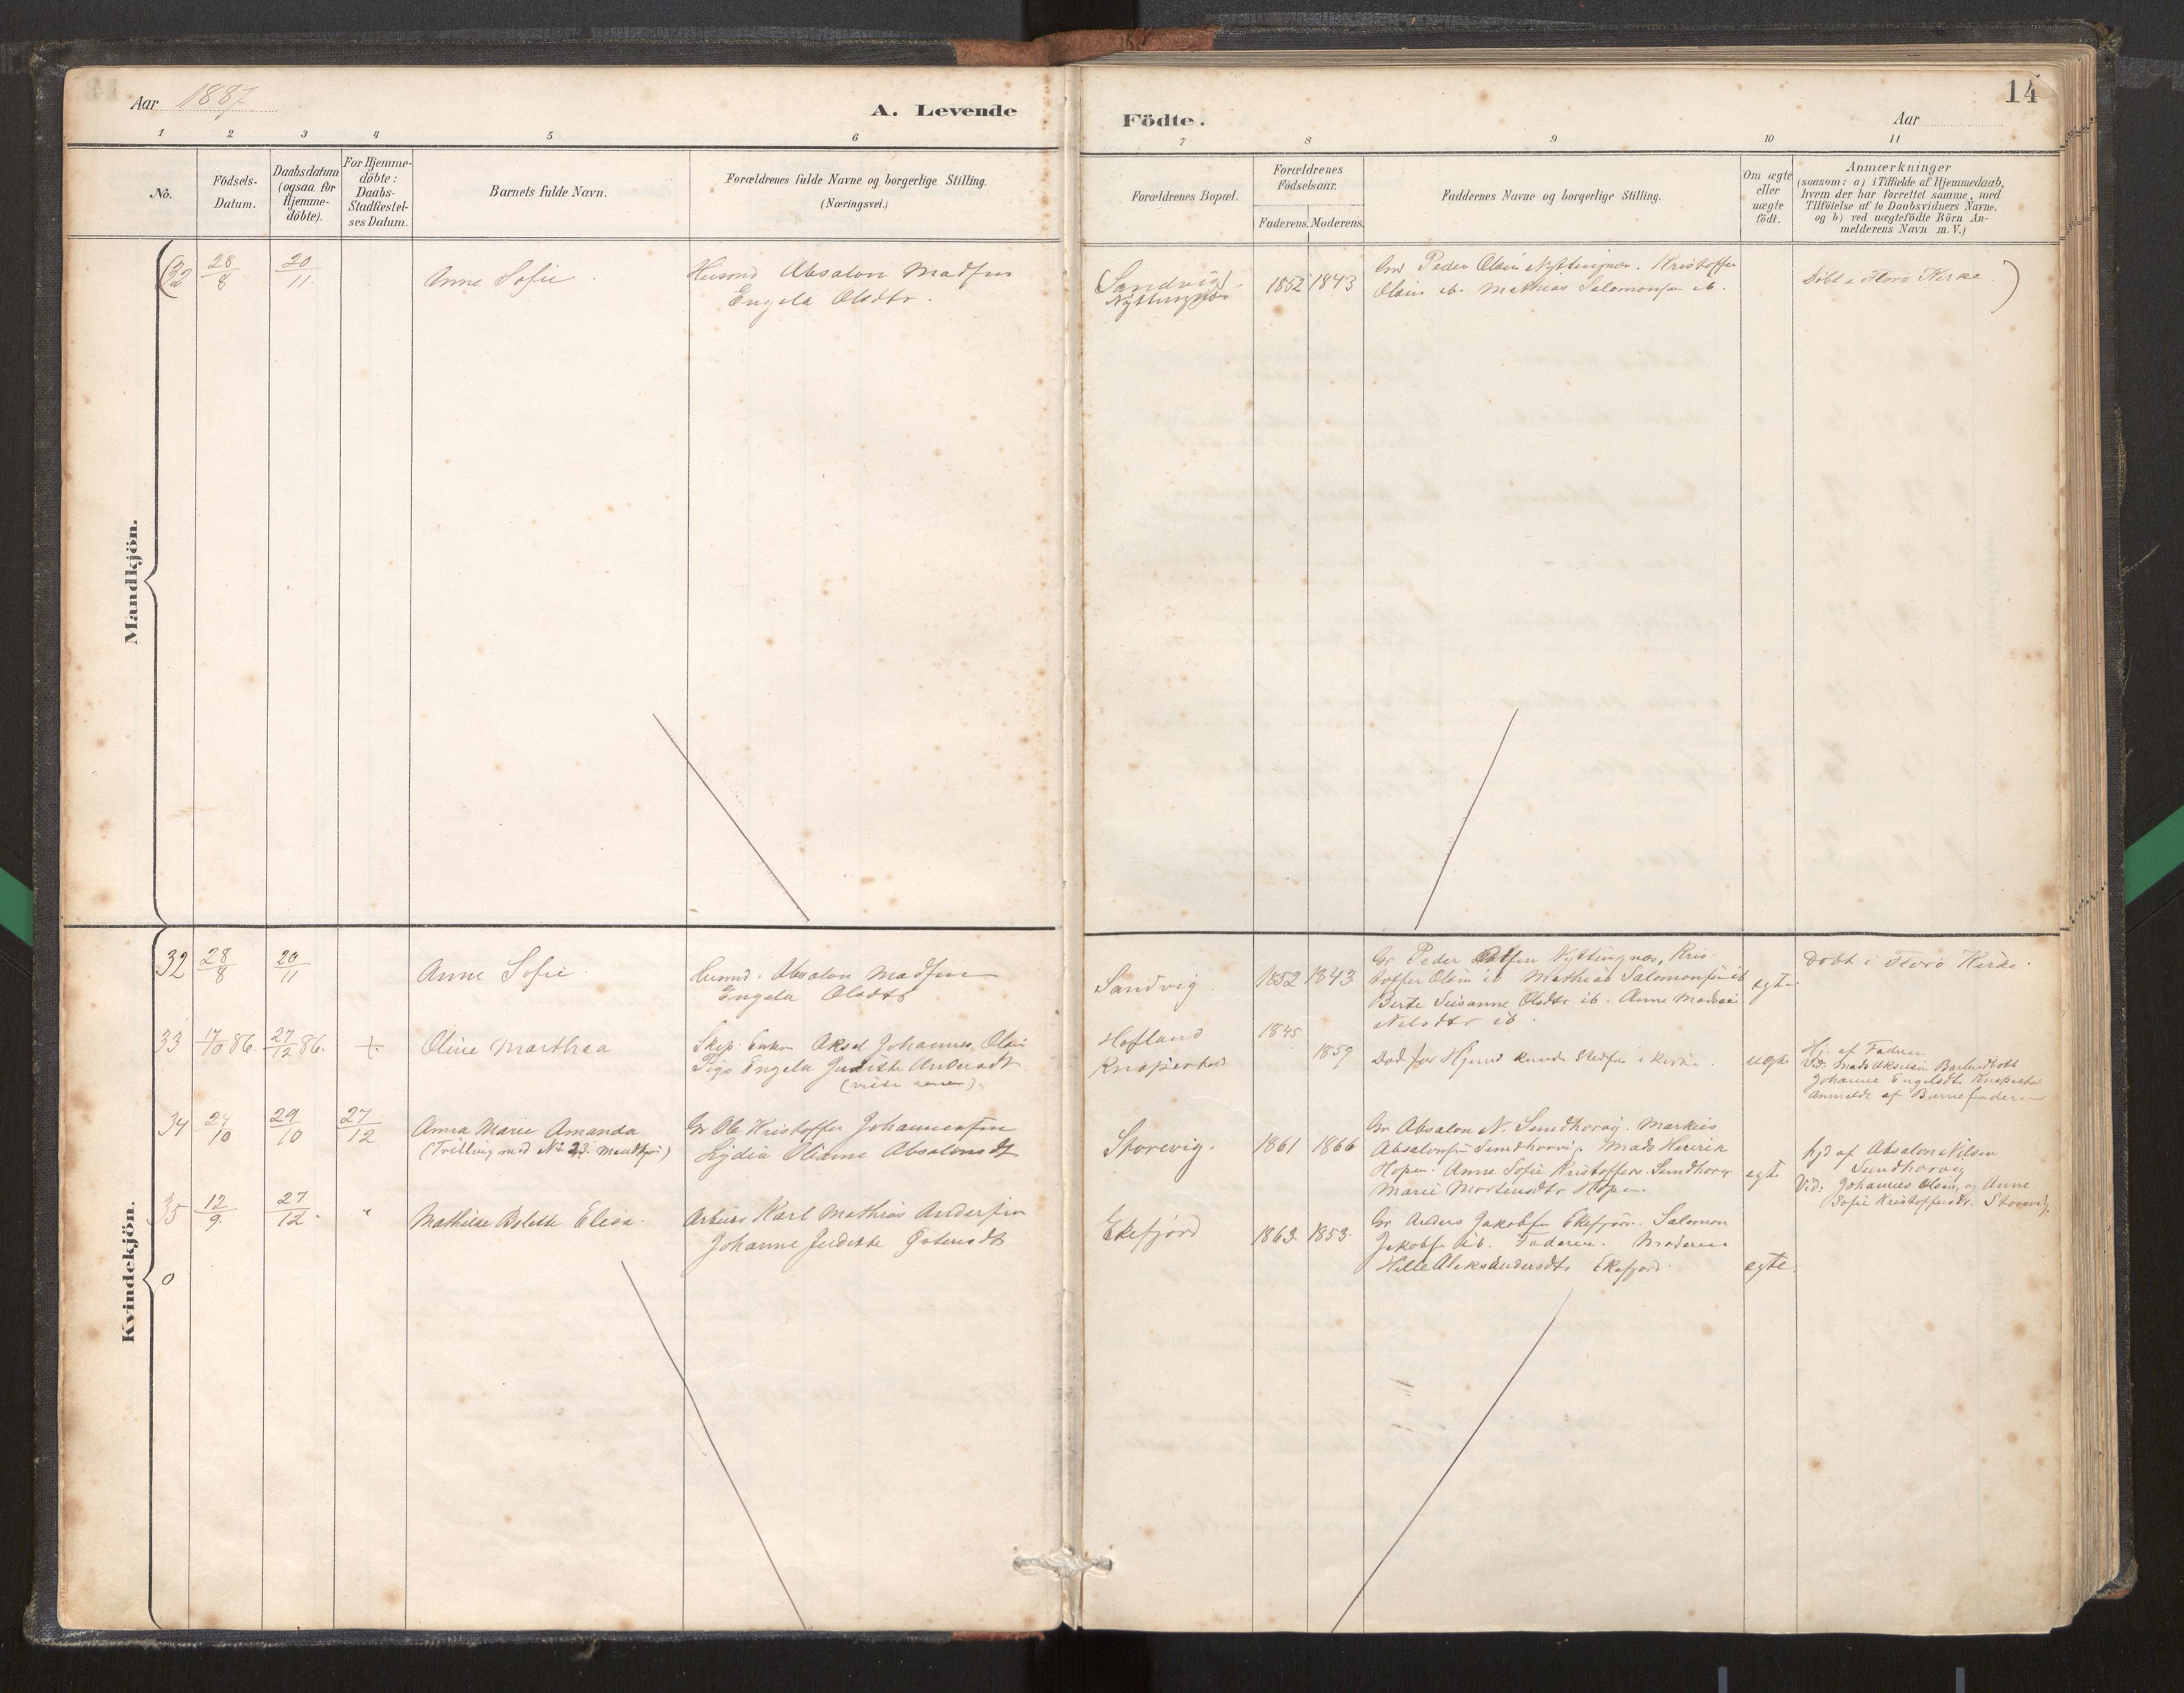 14
Aar 1887
A. Levende
Födte.
Aar
1 2 3 4 5 6 7 8 9 10 11
No.
Födsels-
Datum.
Daabsdatum
(ogsaa for
Hjemme-
döbte).
For Hjemme-
döbte:
Daabs-
Stadfæstel-
ses Datum.
Barnets fulde Navn.
Forældrenes fulde Navne og borgerlige Stilling.
(Næringsvei.)
Forældrenes Bopæl.
Forældrenes
Födselsaar.
Faderens. Moderens.
Faddernes Navne og borgerlige Stilling.
Om ægte
eller
uægte
födt.
Anmærkninger
(saasom: a) i Tilfælde af Hjemmedaab,
hvem der har forrettet samme, med
Tilföielse af to Daabsvidners Navne.
og b) ved uægtefödte Börn An-
melderens Navn m.V.)
Mandkjön.
(32 28/8 20/11 Anne Sofie
Husmd Absalon Madsen
Engela Olsdtr.
Sandvig
Nyttingnæs
1852 1843
Peder Olsen Nyttingnæs. Kristoffer
Olsen ib. Mathias Salomonsen ib.
Döbt i Florö Kirke )
Kvindekjön.
32 28/8 20/11 Anne Sofie
Husmd. Absalon Madsen
Engela Olsdtr
Sandvig.
1852 1843
Gr Peder Olsen Nyttingnæs, Kris-
toffer Olsen ib Mathias Salomonsen ib
Berte Susanne Olsdtr ib. Anne
Nilsdtr ib.
egte
Döbt i Florö Kirke.
33 17/10 86 27/12 86. + Oline Marthea
Skip. Enkm Aksel Johannes Olsen
Pige Engela Andersdt
Hofland
1845
1859
Död för Hjmd kunde Stedfæ i Kirke.
uegte
Hj. af Faderen
Vid: Mads Akselsen
Johanne Engelsdt.
Anmeldt af Barnefaderen
34 24/10 29/10 27/12 Anna Marie Amanda
(Tvilling med No 23. Mandkjön)
Gr Ole Kristoffer Johannessen
Lydia Oliane Absalonsdt
Storevig.
1861 1866
Gr Absalon N. Sundhorvig. Markus
Absalonsen Sundhorvig. Mads Henrik
Hopen. Anne Sofie Kristoffers. Sundhorv
Marie Mortensdtr Hopen.
egte
hjd af Absalon Nilsen
Sundhorvig
Vid: Johannes Olsen, og Anne
Sofie Kristoffersdtr. Storevig.
35 12/9. 27/12. " Mathilde Bolette Elisa.
Arbeider Karl Mathias Andersen
Johanne Judithe Östensdt
Ekefjord
1863. 1853.
Gr Anders Jakobsen Ekefjord. Salomon
Jakobs. ib. Faderen. Moderen
Hille Aleksandersdtr Ekefjord.
egte.
0